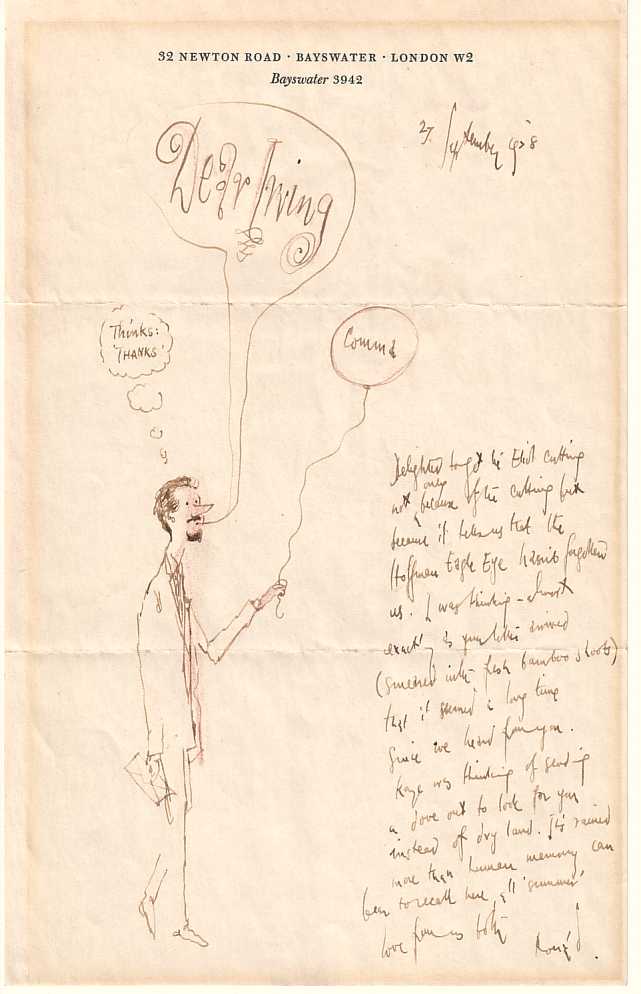 32 NEWTON ROAD · BAYSWATER · LONDON W2
Bayswater 3942
27. September 1958
Dear Irving
Thinks:
'THANKS'
Comma
Delighted to get the Eliot cutting
not only because of the cutting but
because it tells us that the
Hoffman Eagle Eye hasn't forgotten
us. I was thinking - almost
exactly as your letter arrived
(smeared with fresh bamboo shoots)
that it seemed a long time
since we heard from you.
Kaye was thinking of sending
a dove out to look for you
instead of dry land. It's rained
more than human memory can
bear to recall here, all 'summer'
love from us both
Ronald.